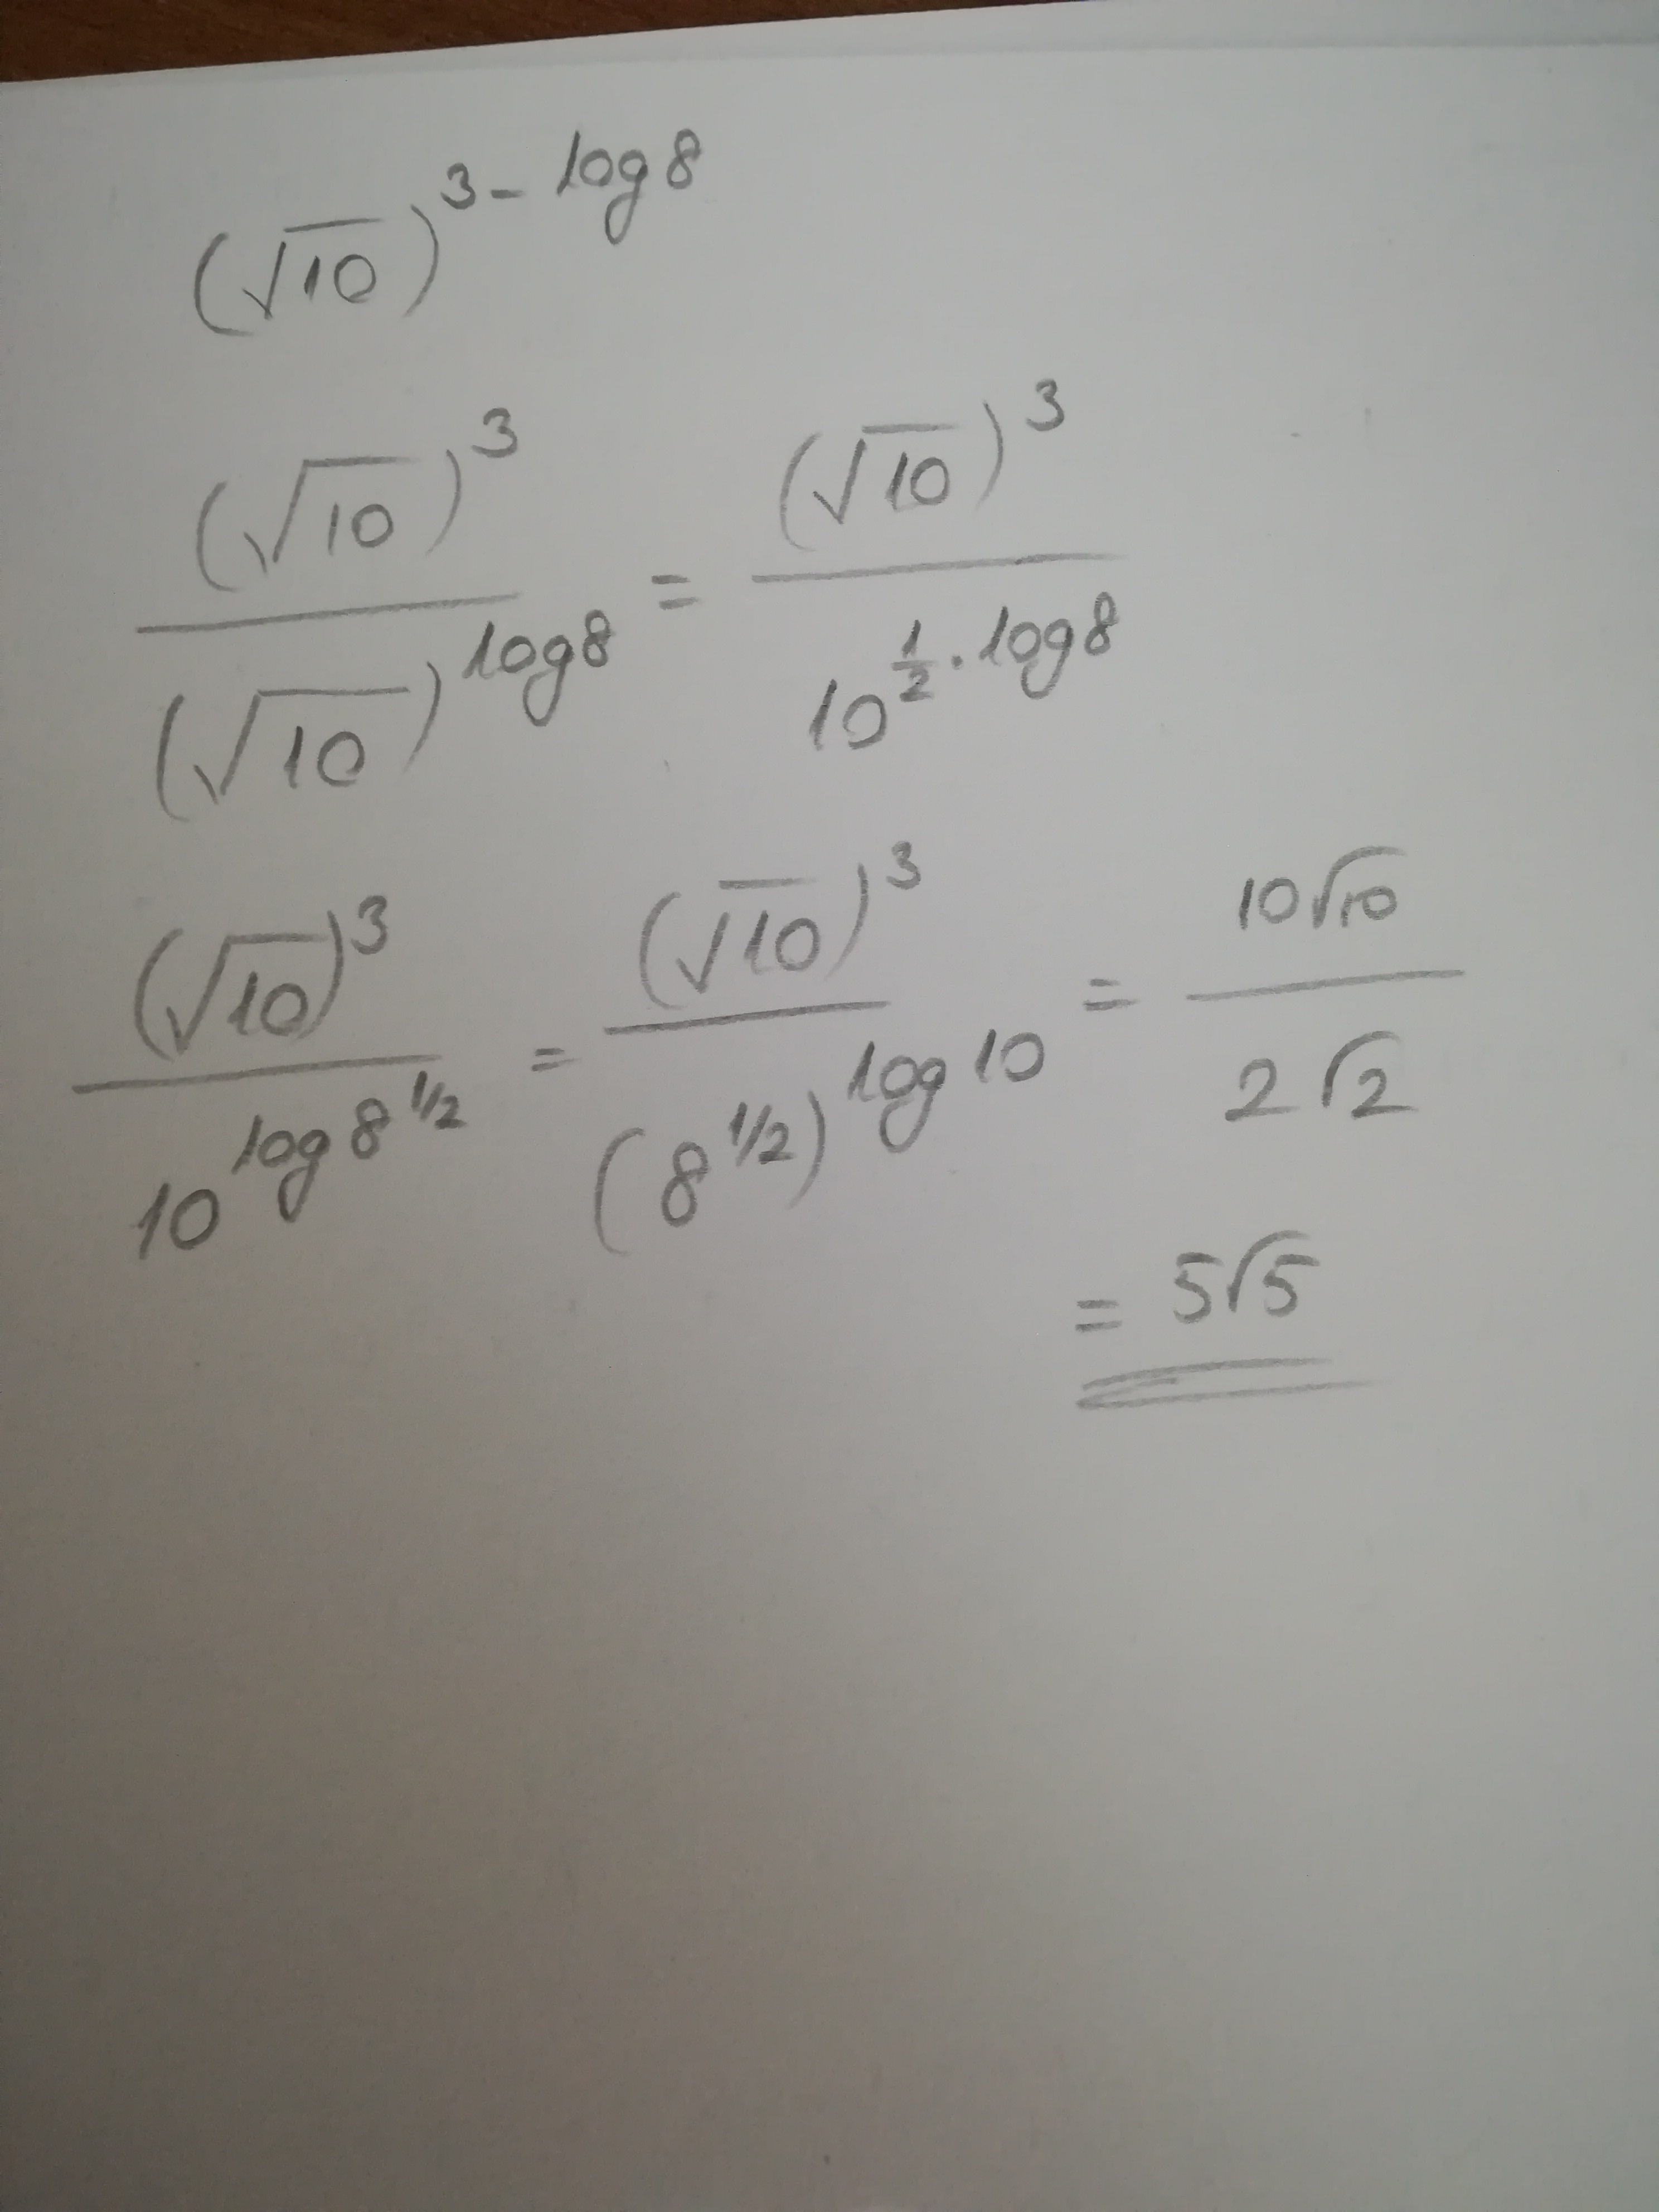 (√10)^(3 - log8)
(√10)^3 / (√10)^(log8) = (√10)^3 / 10^(1/2 · log8)
(√10)^3 / 10^(log8^(1/2)) = (√10)^3 / (8^(1/2))^(log10) = 10√10 / 2√2
= 5√5